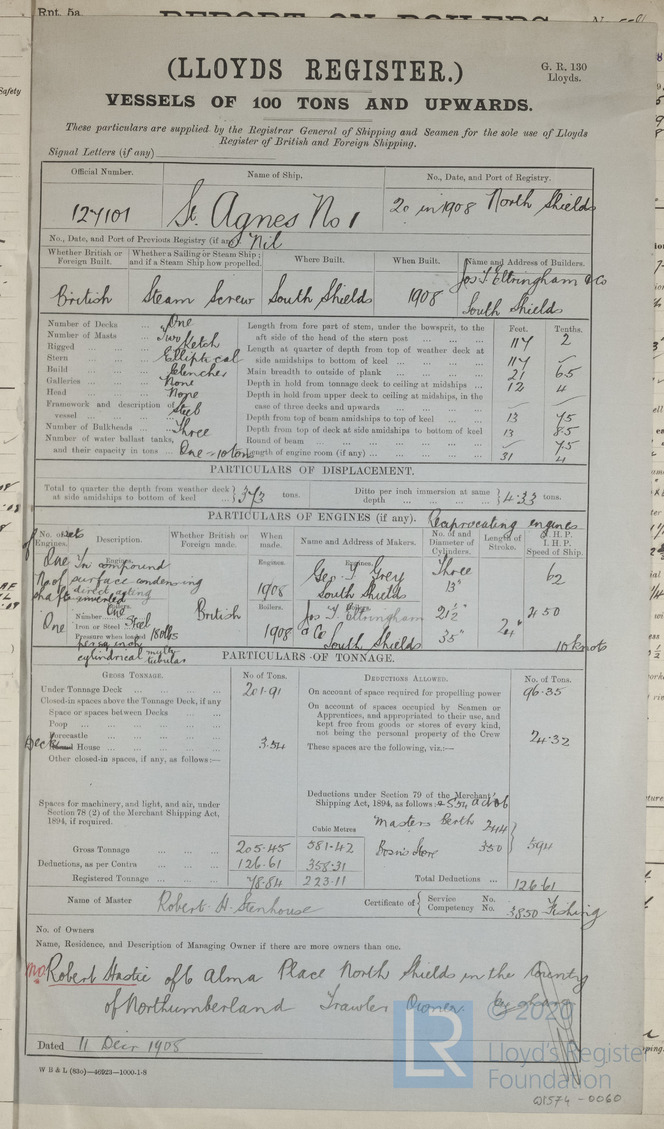 Rpt. 5a.
REPORT ON BOILERS
(LLOYDS REGISTER.)
G. R. 130
Lloyds.
VESSELS OF 100 TONS AND UPWARDS.
These particulars are supplied by the Registrar General of Shipping and Seamen for the sole use of Lloyds
Register of British and Foreign Shipping.
Signal Letters (if any)
Official Number. Name of Ship. No., Date, and Port of Registry.
127101 St. Agnes No 1 20 in 1908 North Shields
No., Date, and Port of Previous Registry (if any). Nil
Whether British or Foreign Built. Whether a Sailing or Steam Ship; and if a Steam Ship how propelled. Where Built. When Built. Name and Address of Builders.
British Steam Screw South Shields 1908 Jos T. Eltringham & Co South Shields
Feet. Tenths.
Number of Decks ... One
Number of Masts ... Two
Rigged ... Ketch
Stern ... Elliptical
Build ... Clencher
Galleries ... None
Head ... None
Framework and description of vessel ... Steel
Number of Bulkheads ... Three
Number of water ballast tanks, and their capacity in tons ... One - 10 tons
Length from fore part of stem, under the bowsprit, to the aft side of the head of the stern post ... 117 2
Length at quarter of depth from top of weather deck at side amidships to bottom of keel ... 117
Main breadth to outside of plank ... 21 65
Depth in hold from tonnage deck to ceiling at midships ... 12 4
Depth in hold from upper deck to ceiling at midships, in the case of three decks and upwards ...
Depth from top of beam amidships to top of keel ... 13 75
Depth from top of deck at side amidships to bottom of keel 13 85
Round of beam ... 75
Length of engine room (if any) ... 31 4
PARTICULARS OF DISPLACEMENT.
Total to quarter the depth from weather deck at side amidships to bottom of keel } 373 tons. Ditto per inch immersion at same depth } 4.33 tons.
PARTICULARS OF ENGINES (if any). Reciprocating engines
No. of sets of Engines. Description. Whether British or Foreign made. When made. Name and Address of Makers. No. and Diameter of Cylinders. Length of Stroke. N. H. P. I. H. P. Speed of Ship.
Engines. Engines. Engines.
One Tri compound
No of surface condensing
shafts direct acting
One inverted
1908 Geo. T. Grey South Shields
Three 13" 62
Boilers. Boilers. Boilers.
Number One
One Iron or Steel Steel
Pressure when loaded 180 lbs
per sq inch
cylindrical multitubular
British 1908 Jos T. Eltringham & Co South Shields
21½" 35" 24" 450
10 knots
PARTICULARS OF TONNAGE.
GROSS TONNAGE. No. of Tons. DEDUCTIONS ALLOWED. No. of Tons.
Under Tonnage Deck ... 201.91
Closed-in spaces above the Tonnage Deck, if any
Space or spaces between Decks ...
Poop ...
Forecastle ...
Deck House ... 3.54
Other closed-in spaces, if any, as follows:—
Spaces for machinery, and light, and air, under Section 78 (2) of the Merchant Shipping Act, 1894, if required.
On account of space required for propelling power 96.35
On account of spaces occupied by Seamen or Apprentices, and appropriated to their use, and kept free from goods or stores of every kind, not being the personal property of the Crew 24.32
These spaces are the following, viz.:—
Deductions under Section 79 of the Merchant Shipping Act, 1894, as follows:
Masters berth 244
Bosn's Store 350 } 594
Cubic Metres
Gross Tonnage ... 205.45 581.42
Deductions, as per Contra ... 126.61 358.31
Registered Tonnage ... 78.84 223.11
Total Deductions ... 126.61
Name of Master Robert H. Stenhouse Certificate of { Service No. Competency No. 3850 Fishing
No. of Owners
Name, Residence, and Description of Managing Owner if there are more owners than one.
Robert Hastie of 6 Alma Place North Shields in the County
of Northumberland Trawler Owner
Dated 11 Decr 1908
W B & L (83o)—46923—1000-1-8
© 2020
LR
Lloyd's Register
Foundation
Q1574-0060